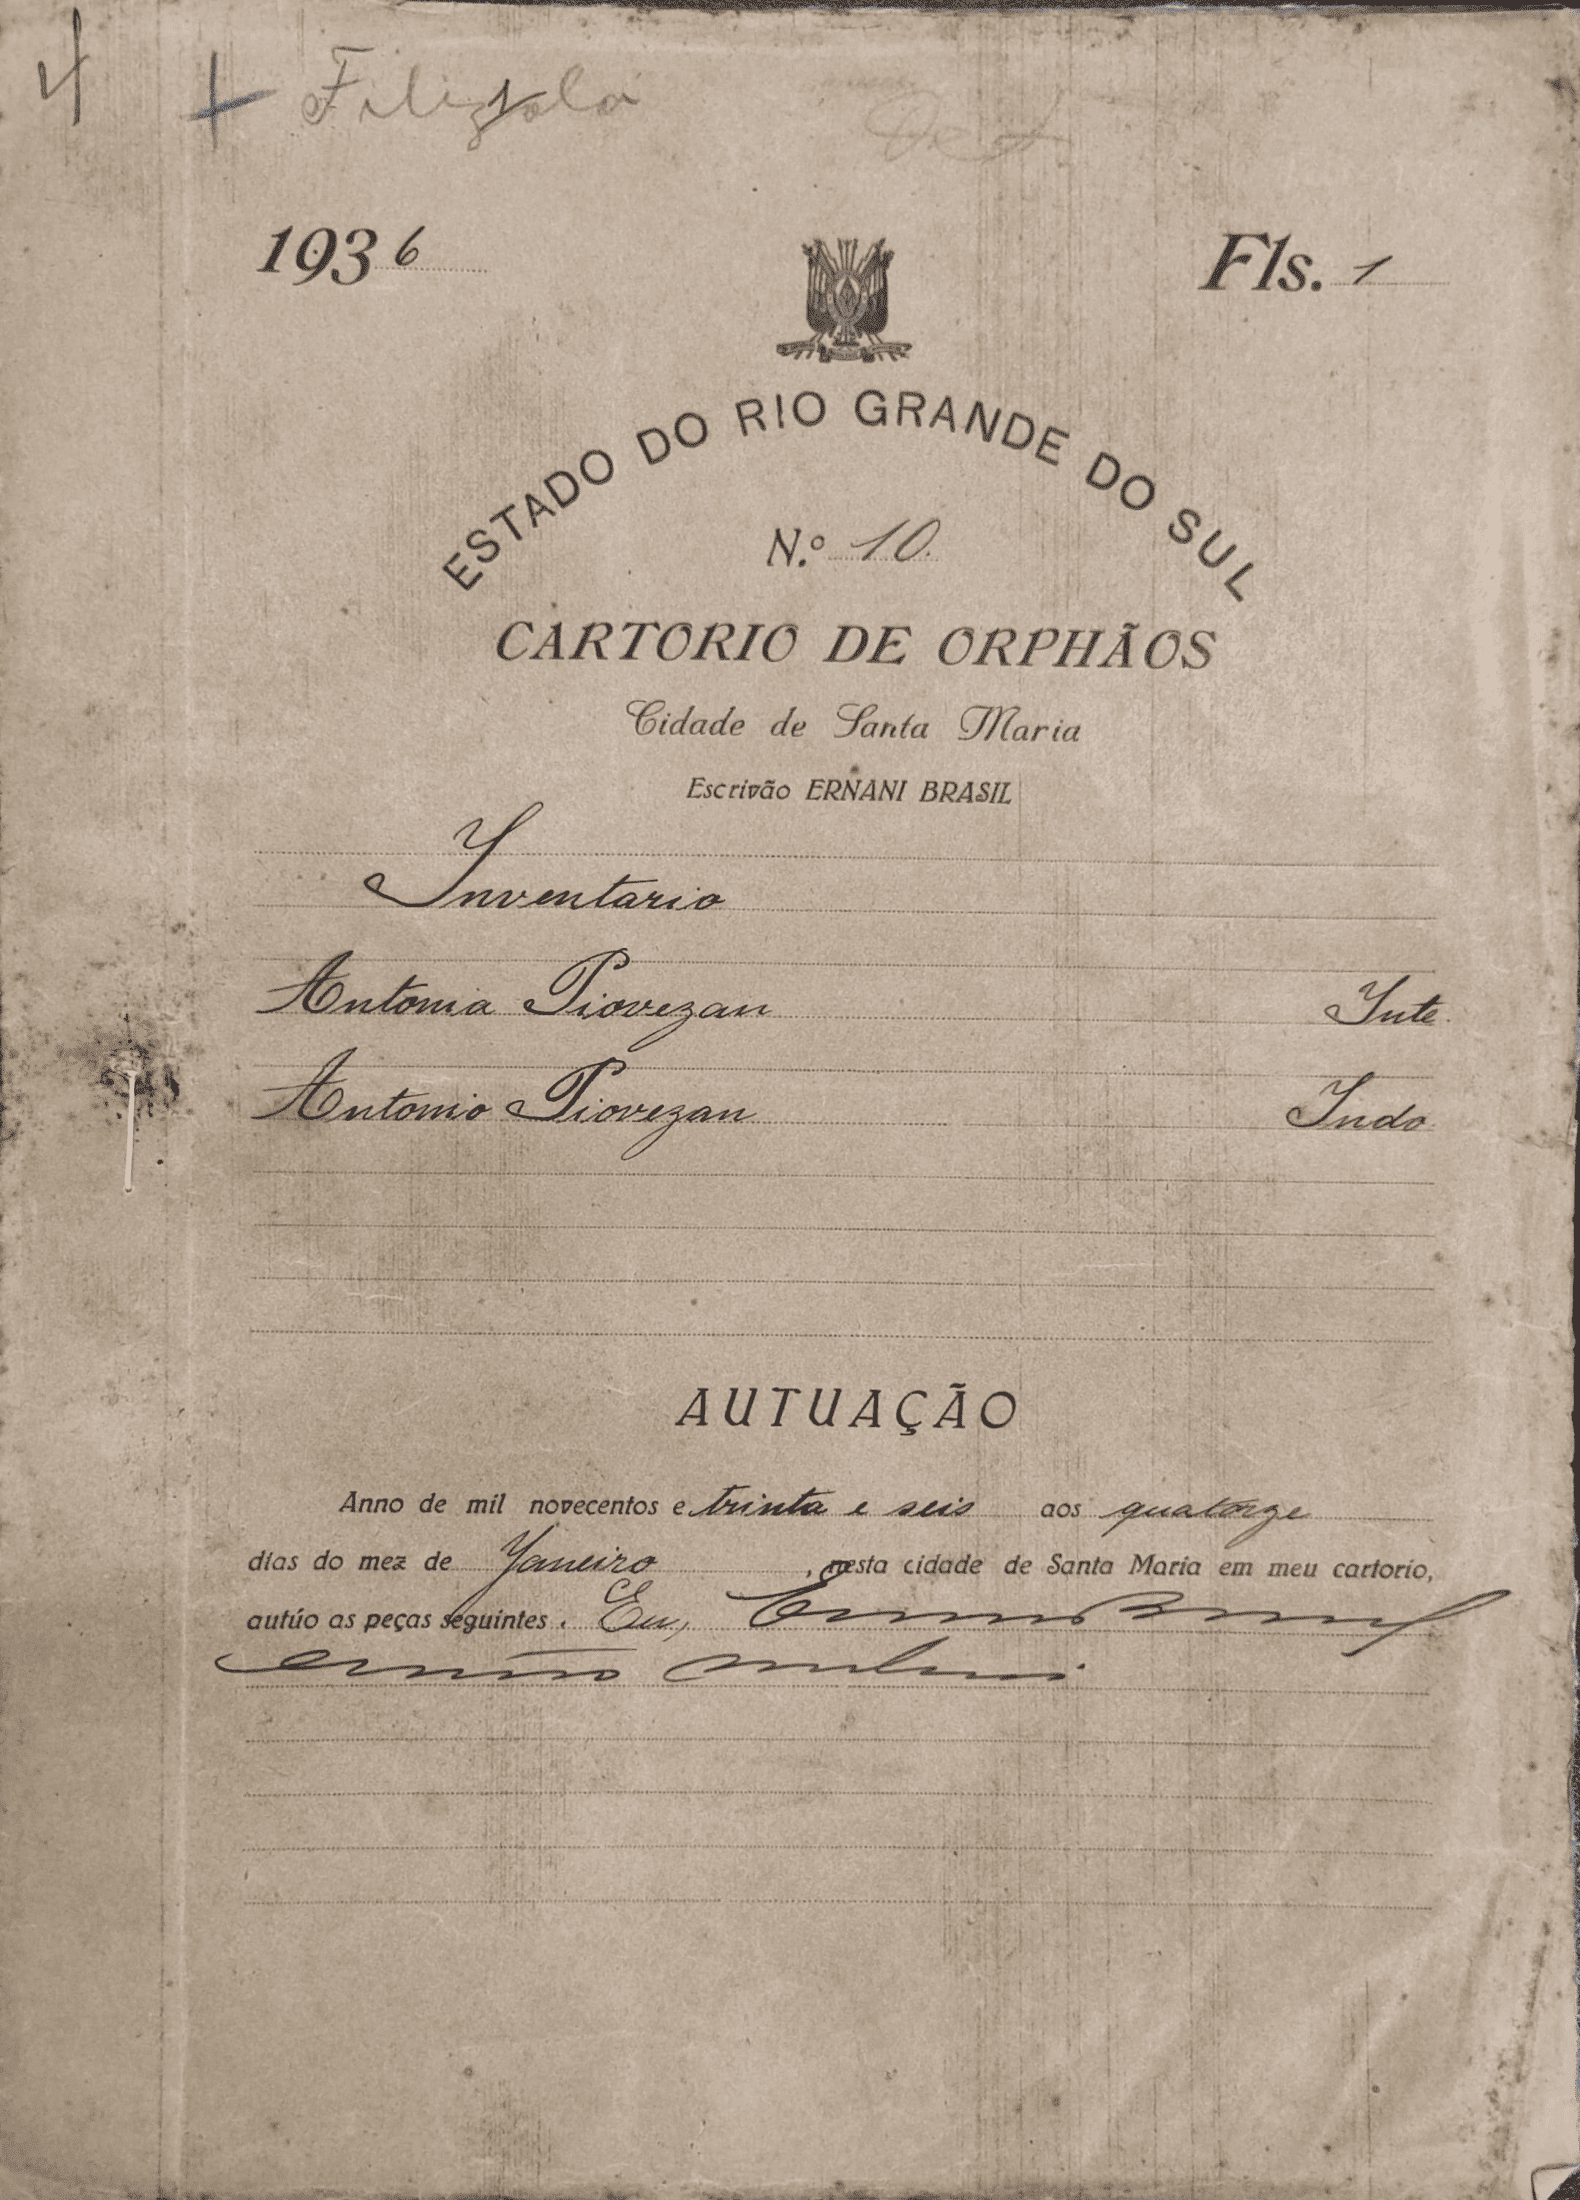 4 + Filizola
1936 Fls. 1
ESTADO DO RIO GRANDE DO SUL
N.º 10.
CARTORIO DE ORPHÃOS
Cidade de Santa Maria
Escrivão ERNANI BRASIL
Inventario
Antonia Piovezan Inte.
Antonio Piovezan Indo.
AUTUAÇÃO
Anno de mil novecentos e trinta e seis aos quatorze
dias do mez de Janeiro, nesta cidade de Santa Maria em meu cartorio,
autúo as peças seguintes. Eu,